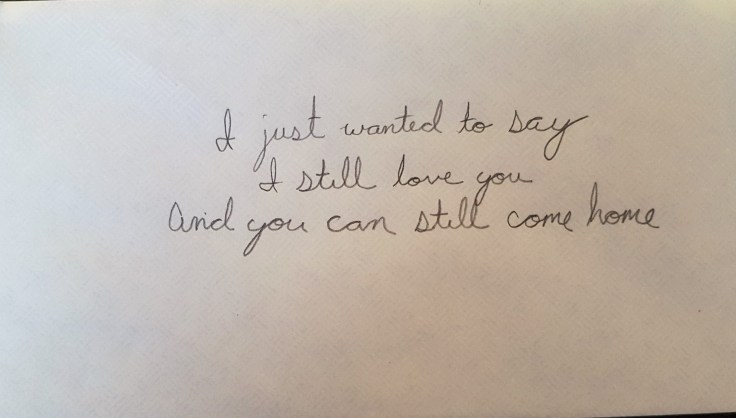 I just wanted to say
I still love you
And you can still come home